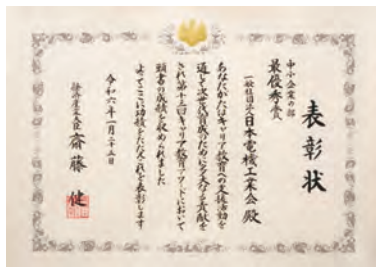 表彰状
中小企業の部
最優秀賞
一般社団法人日本電機工業会 殿
あなたがたはキャリア教育への支援活動を
通して次世代育成のために多大なる貢献を
され第十三回キャリア教育アワードにおいて
頭書の成績を収められました
よってここに功績をたたえこれを表彰します
令和六年一月二十五日
経済産業大臣 齋藤 健